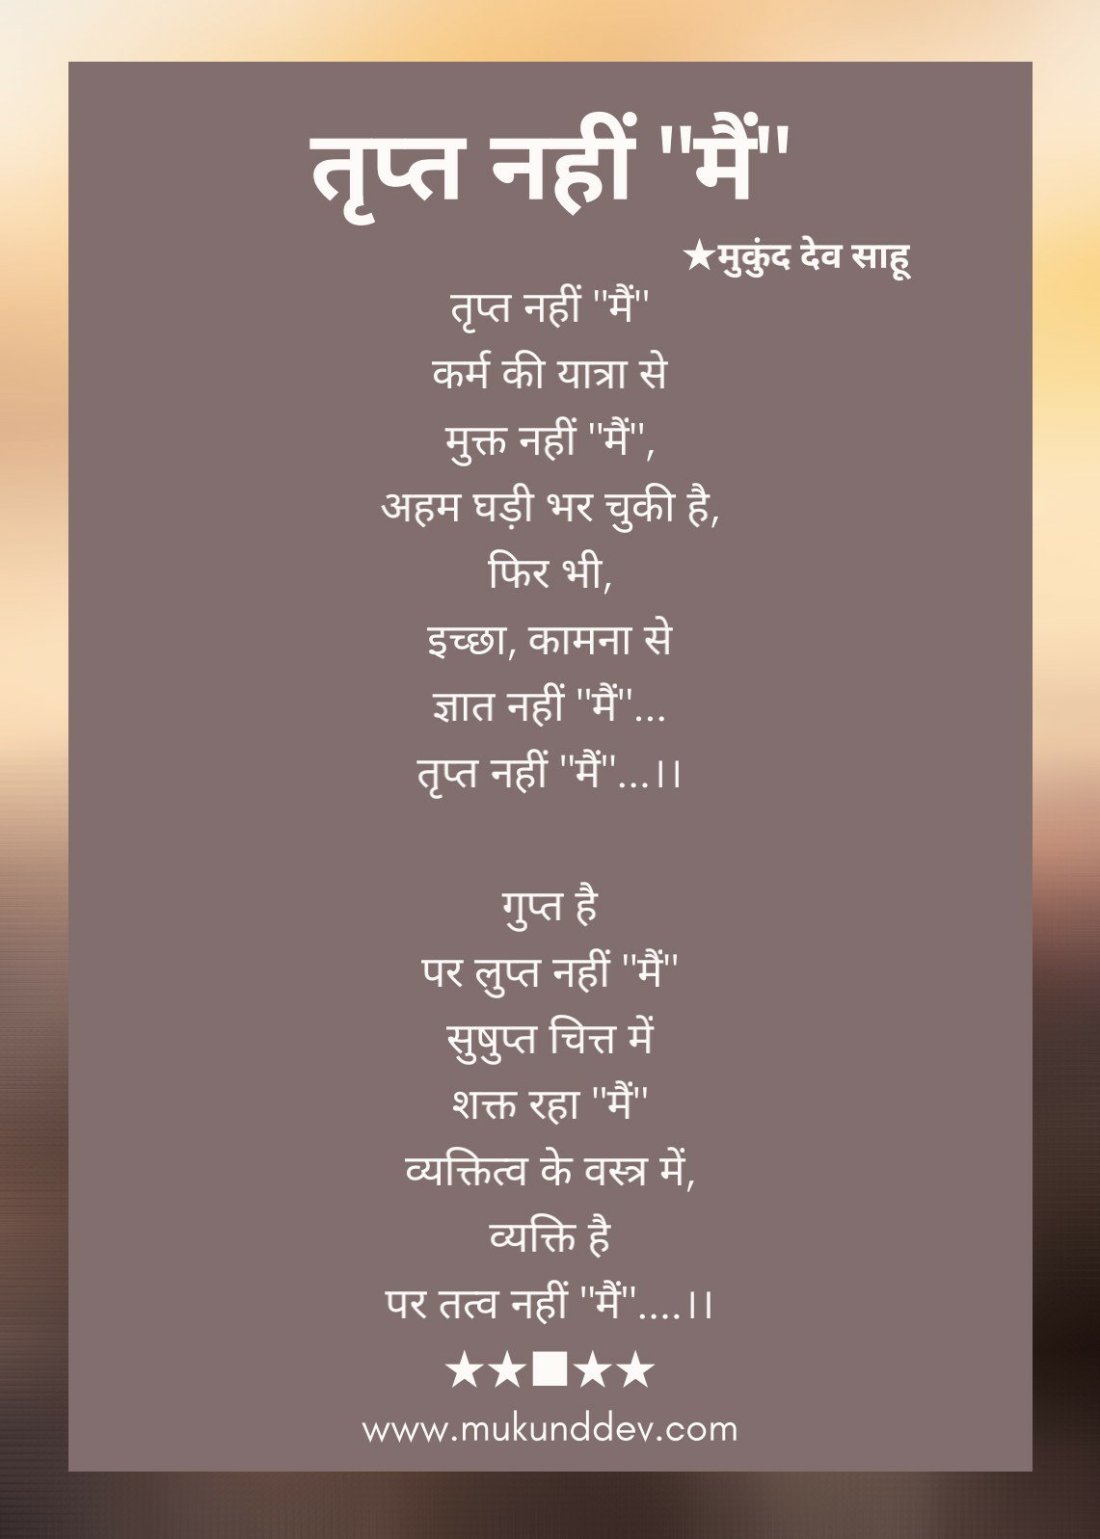 तृप्त नहीं "मैं"
★मुकुंद देव साहू
तृप्त नहीं "मैं"
कर्म की यात्रा से
मुक्त नहीं "मैं",
अहम घड़ी भर चुकी है,
फिर भी,
इच्छा, कामना से
ज्ञात नहीं "मैं"...
तृप्त नहीं "मैं"...।।
गुप्त है
पर लुप्त नहीं "मैं"
सुषुप्त चित्त में
शक्त रहा "मैं"
व्यक्तित्व के वस्त्र में,
व्यक्ति है
पर तत्व नहीं "मैं"....।।
★★■★★
www.mukunddev.com